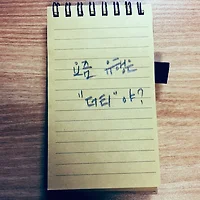 요즘 유행은
"더티" 야?